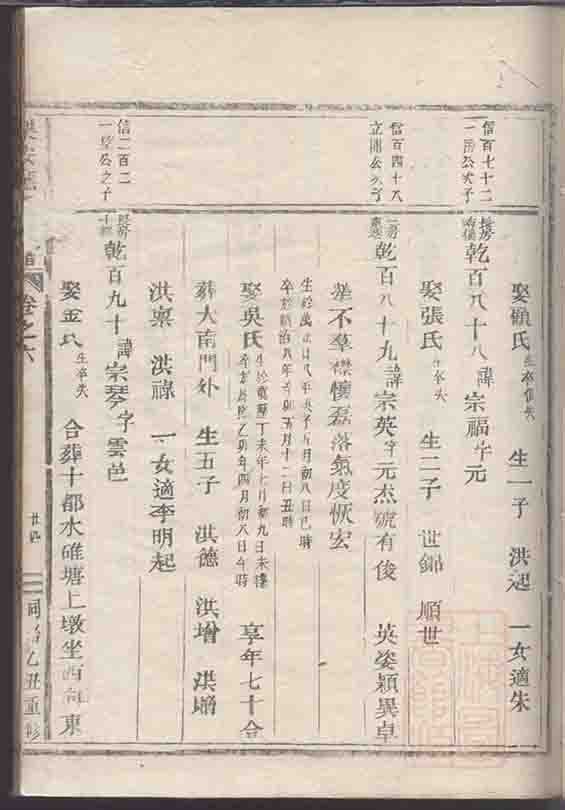 娶顧氏生卒俱失 生一子 洪起 一女適朱
信百七十二
一 公次子
乾百八十八諱宗福字元
娶張氏生卒失 生二子 世錦 順世
信百四十八
立 公次子
乾百八十九諱宗英字元杰號有俊 英姿穎異卓
犖不羣襟懷磊落氣度恢宏
生於萬 年 月初八日巳時
卒於順治八年辛卯五月十二日丑時
娶吳氏生於 丁未年七月初九日未時 卒於康熙 乙卯年四月初八日午時 享年七十 合
葬大南門外 生五子 洪德 洪增 洪
洪稟 洪祿 一女適李明起
信二百二
一 公之子
乾百九十諱宗琴字雲邑
娶金氏生卒失 合葬十都水碓塘上墩坐西向東
卷之六
廿四
同治乙丑重修